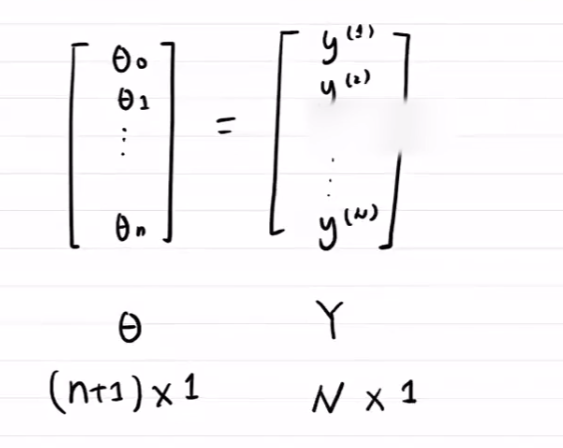 [ θ0 θ1 ⋮ θn ] = [ y^(1) y^(2) ⋮ y^(N) ]
θ Y
(n+1) x 1 N x 1